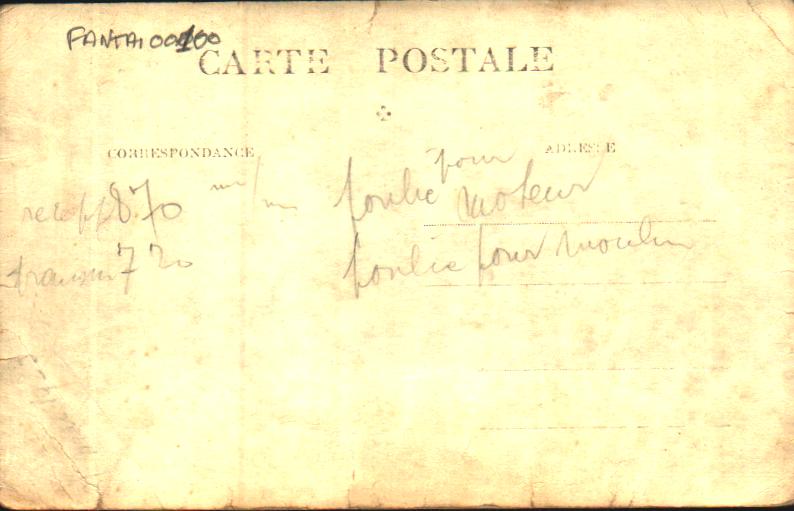 FANTAI00100
CARTE POSTALE
CORRESPONDANCE
ADRESSE
870 m/m poulie pour moteur
720 poulie pour moulin